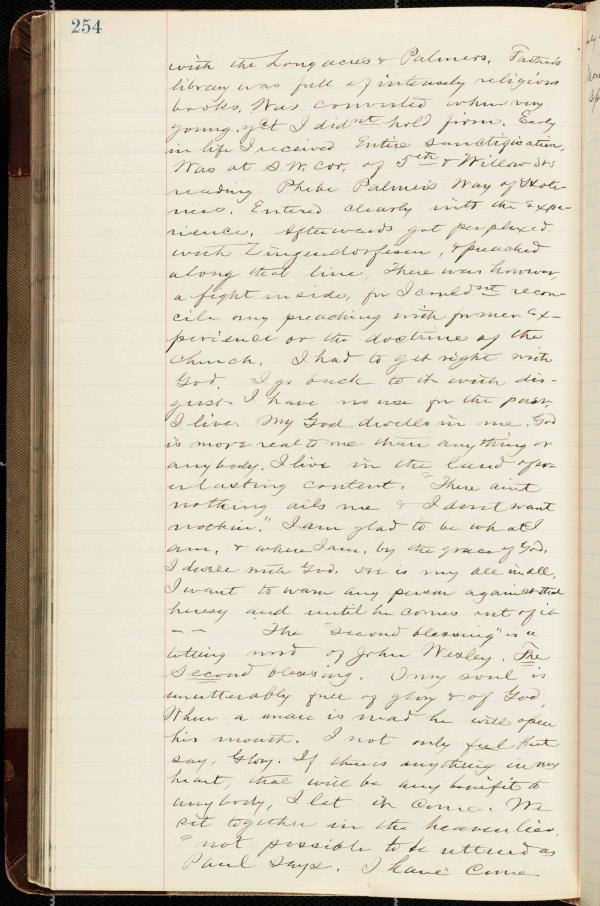 254
with the Longacres & Palmers. Father's
library was full of intensely religious
books. Was converted when very
young, yet I didn't hold firm. Early
in life I received Entire Sanctification.
Was at S.W. Cor. of 5th & Willow Sts
reading Phebe Palmer's Way of Holi-
ness. Entered clearly into the Expe-
rience. Afterwards got perplexed
with Zinzendorfism, & preached
along that line. There was however
a fight inside, for I couldn't recon-
cile my preaching with former Ex-
perience or the doctrine of the
Church. I had to get right with
God. I go back to it with dis-
gust. I have no use for the past
I live. My God dwells in me. God
is more real to me than anything or
anybody. I live in the land of ev-
erlasting content. "There aint
nothing ails me & I dont want
nothin." I am glad to be what I
am, & where I am, by the grace of God.
I dwell with God. He is my all in all.
I want to warn any person against that
heresy and until he comes out of it
– – The "second blessing" is a
word of John Wesley. The
Second blessing. O my soul is
unutterably full of glory & of God.
When a man is mad he will open
his mouth. I not only feel but
say, Glory. If there is anything in my
heart, that will be any benefit to
anybody, I let it come. We
sit together in the heavenlies.
"not possible to be uttered as
Paul says. I have come